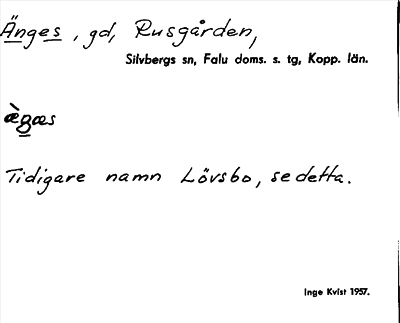 Änges, gd, Rusgården,
Silvbergs sn, Falu doms. s. tg, Kopp. län.
æ̀gæs
Tidigare namn Lövsbo, se detta.
Inge Kvist 1957.